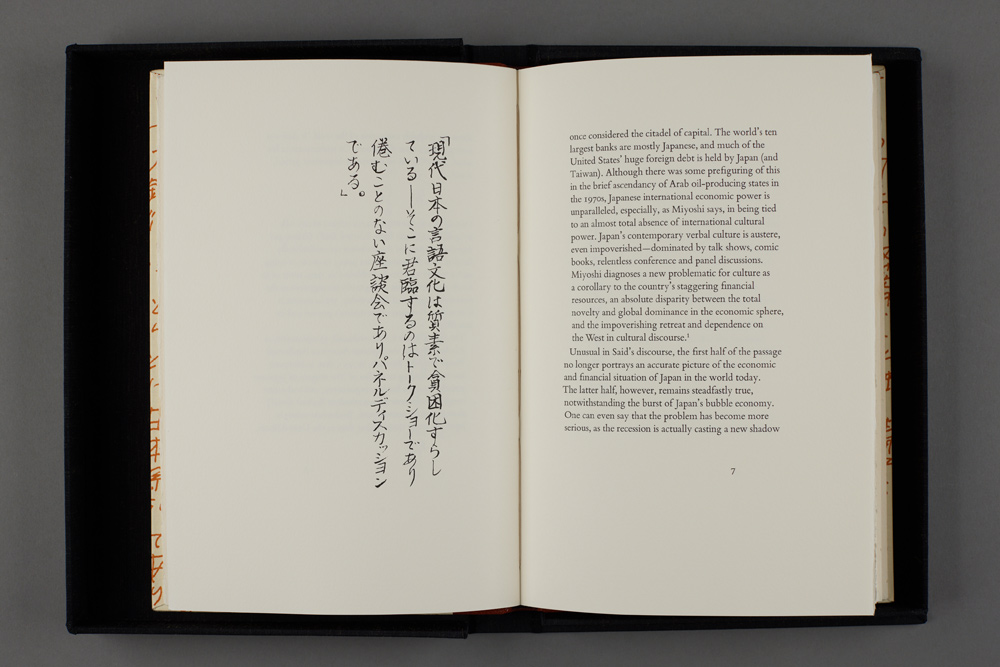 「現代日本の言語文化は質素で貧困化すらし
ている――そこに君臨するのはトークショーであり
倦むことのない座談会でありパネルディスカッション
である。」
once considered the citadel of capital. The world's ten
largest banks are mostly Japanese, and much of the
United States' huge foreign debt is held by Japan (and
Taiwan). Although there was some prefiguring of this
in the brief ascendancy of Arab oil-producing states in
the 1970s, Japanese international economic power is
unparalleled, especially, as Miyoshi says, in being tied
to an almost total absence of international cultural
power. Japan's contemporary verbal culture is austere,
even impoverished—dominated by talk shows, comic
books, relentless conference and panel discussions.
Miyoshi diagnoses a new problematic for culture as
a corollary to the country's staggering financial
resources, an absolute disparity between the total
novelty and global dominance in the economic sphere,
and the impoverishing retreat and dependence on
the West in cultural discourse.¹
Unusual in Said's discourse, the first half of the passage
no longer portrays an accurate picture of the economic
and financial situation of Japan in the world today.
The latter half, however, remains steadfastly true,
notwithstanding the burst of Japan's bubble economy.
One can even say that the problem has become more
serious, as the recession is actually casting a new shadow
7